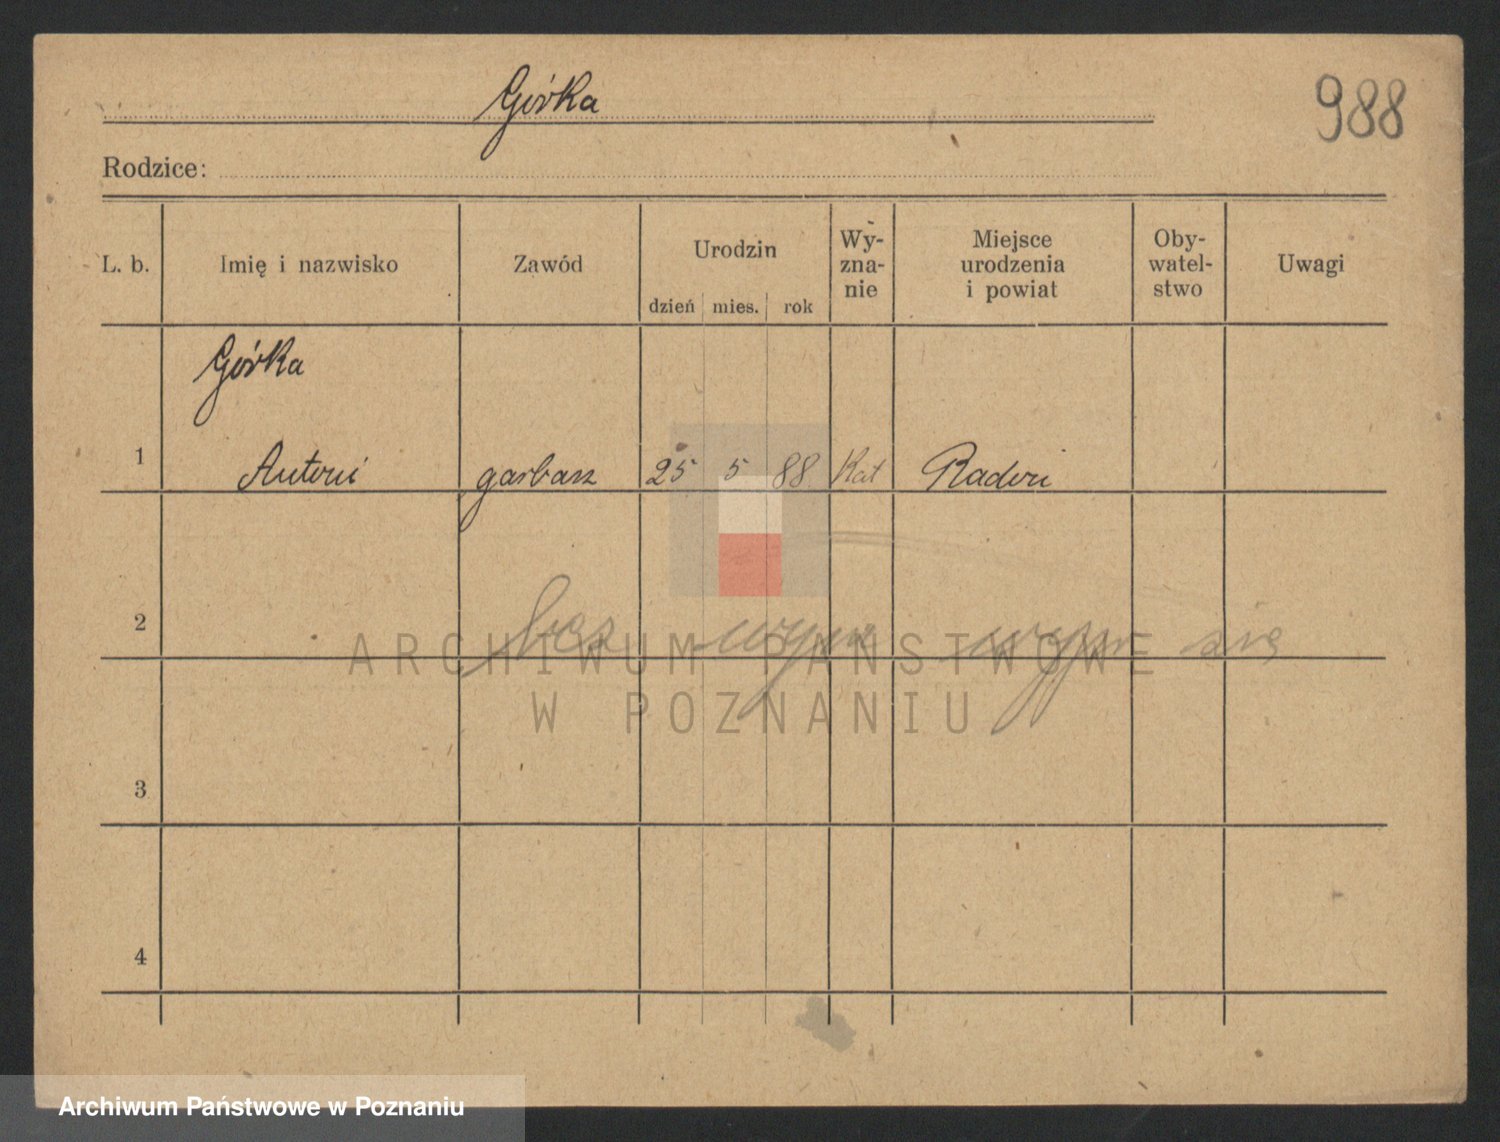 Górka
988
Rodzice:
L. b. Imię i nazwisko Zawód Urodzin dzień mies. rok Wy-zna-nie Miejsce urodzenia i powiat Oby-watel-stwo Uwagi
Górka
1 Antoni garbarz 25 5 88 Kat
2 bez się
3
4
ARCHIWUM PAŃSTWOWE
W POZNANIU
Archiwum Państwowe w Poznaniu